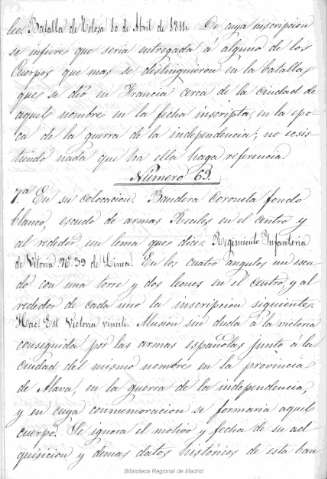 lee Batalla de Tolosa 10 de Abril de 1814. De cuya inscripcion
se infiere que sería entregada a alguno de los
Cuerpos que mas se distinguieron en la batalla
que se dió en Francia cerca de la Ciudad de
aquel nombre en la fecha inscripta, en la epo-
ca de la guerra de la independencia, no exis-
tiendo nada que ha ella haga referencia
Número 63.
7ª En su colocacion. Bandera Coronela fondo
blanco, escudo de armas Reales en el centro y
al rededor un lema que dice; Regimiento Infanteria
de Vitoria Nº 39 de Linea. En los cuatro angulos un escu-
do con una torre y dos leones en el centro y al
rededor de cada uno la inscripcion siguiente,
Hæc Est Victoria vincit. Alusion sin duda a la victoria
conseguida por las armas españolas junto a la
Ciudad del mismo nombre en la provincia
de Alava, en la guerra de la independencia,
y en cuya conmemoracion se formaria aquel
cuerpo. Se ignora el motivo y fecha de su ad-
quisicion y demas datos históricos de esta ban
Biblioteca Regional de Madrid